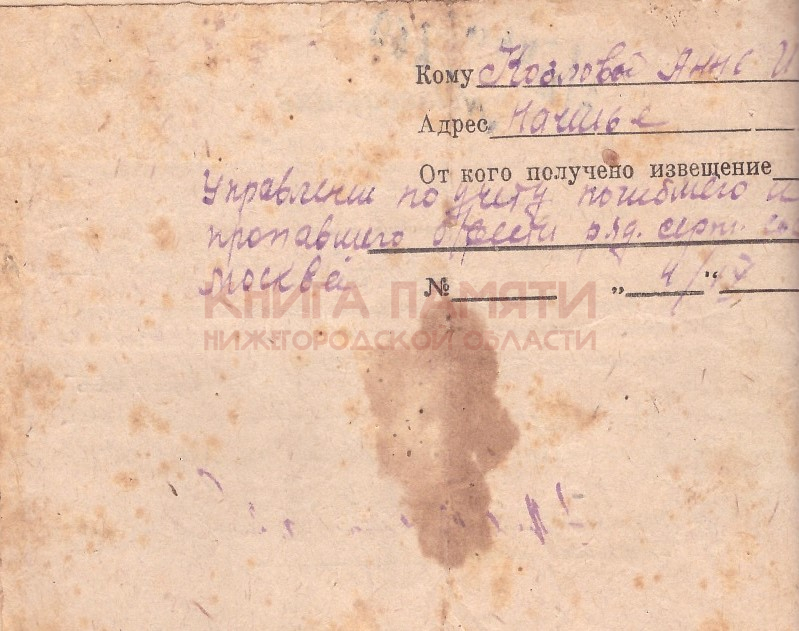 Кому Козловой Анне И
Адрес Начинье
От кого получено извещение
Управления по учету погибшего и
пропавшего б/вести ряд. серж. со
Москва
№ „ 4/ “ 47
КНИГА ПАМЯТИ
НИЖЕГОРОДСКОЙ ОБЛАСТИ